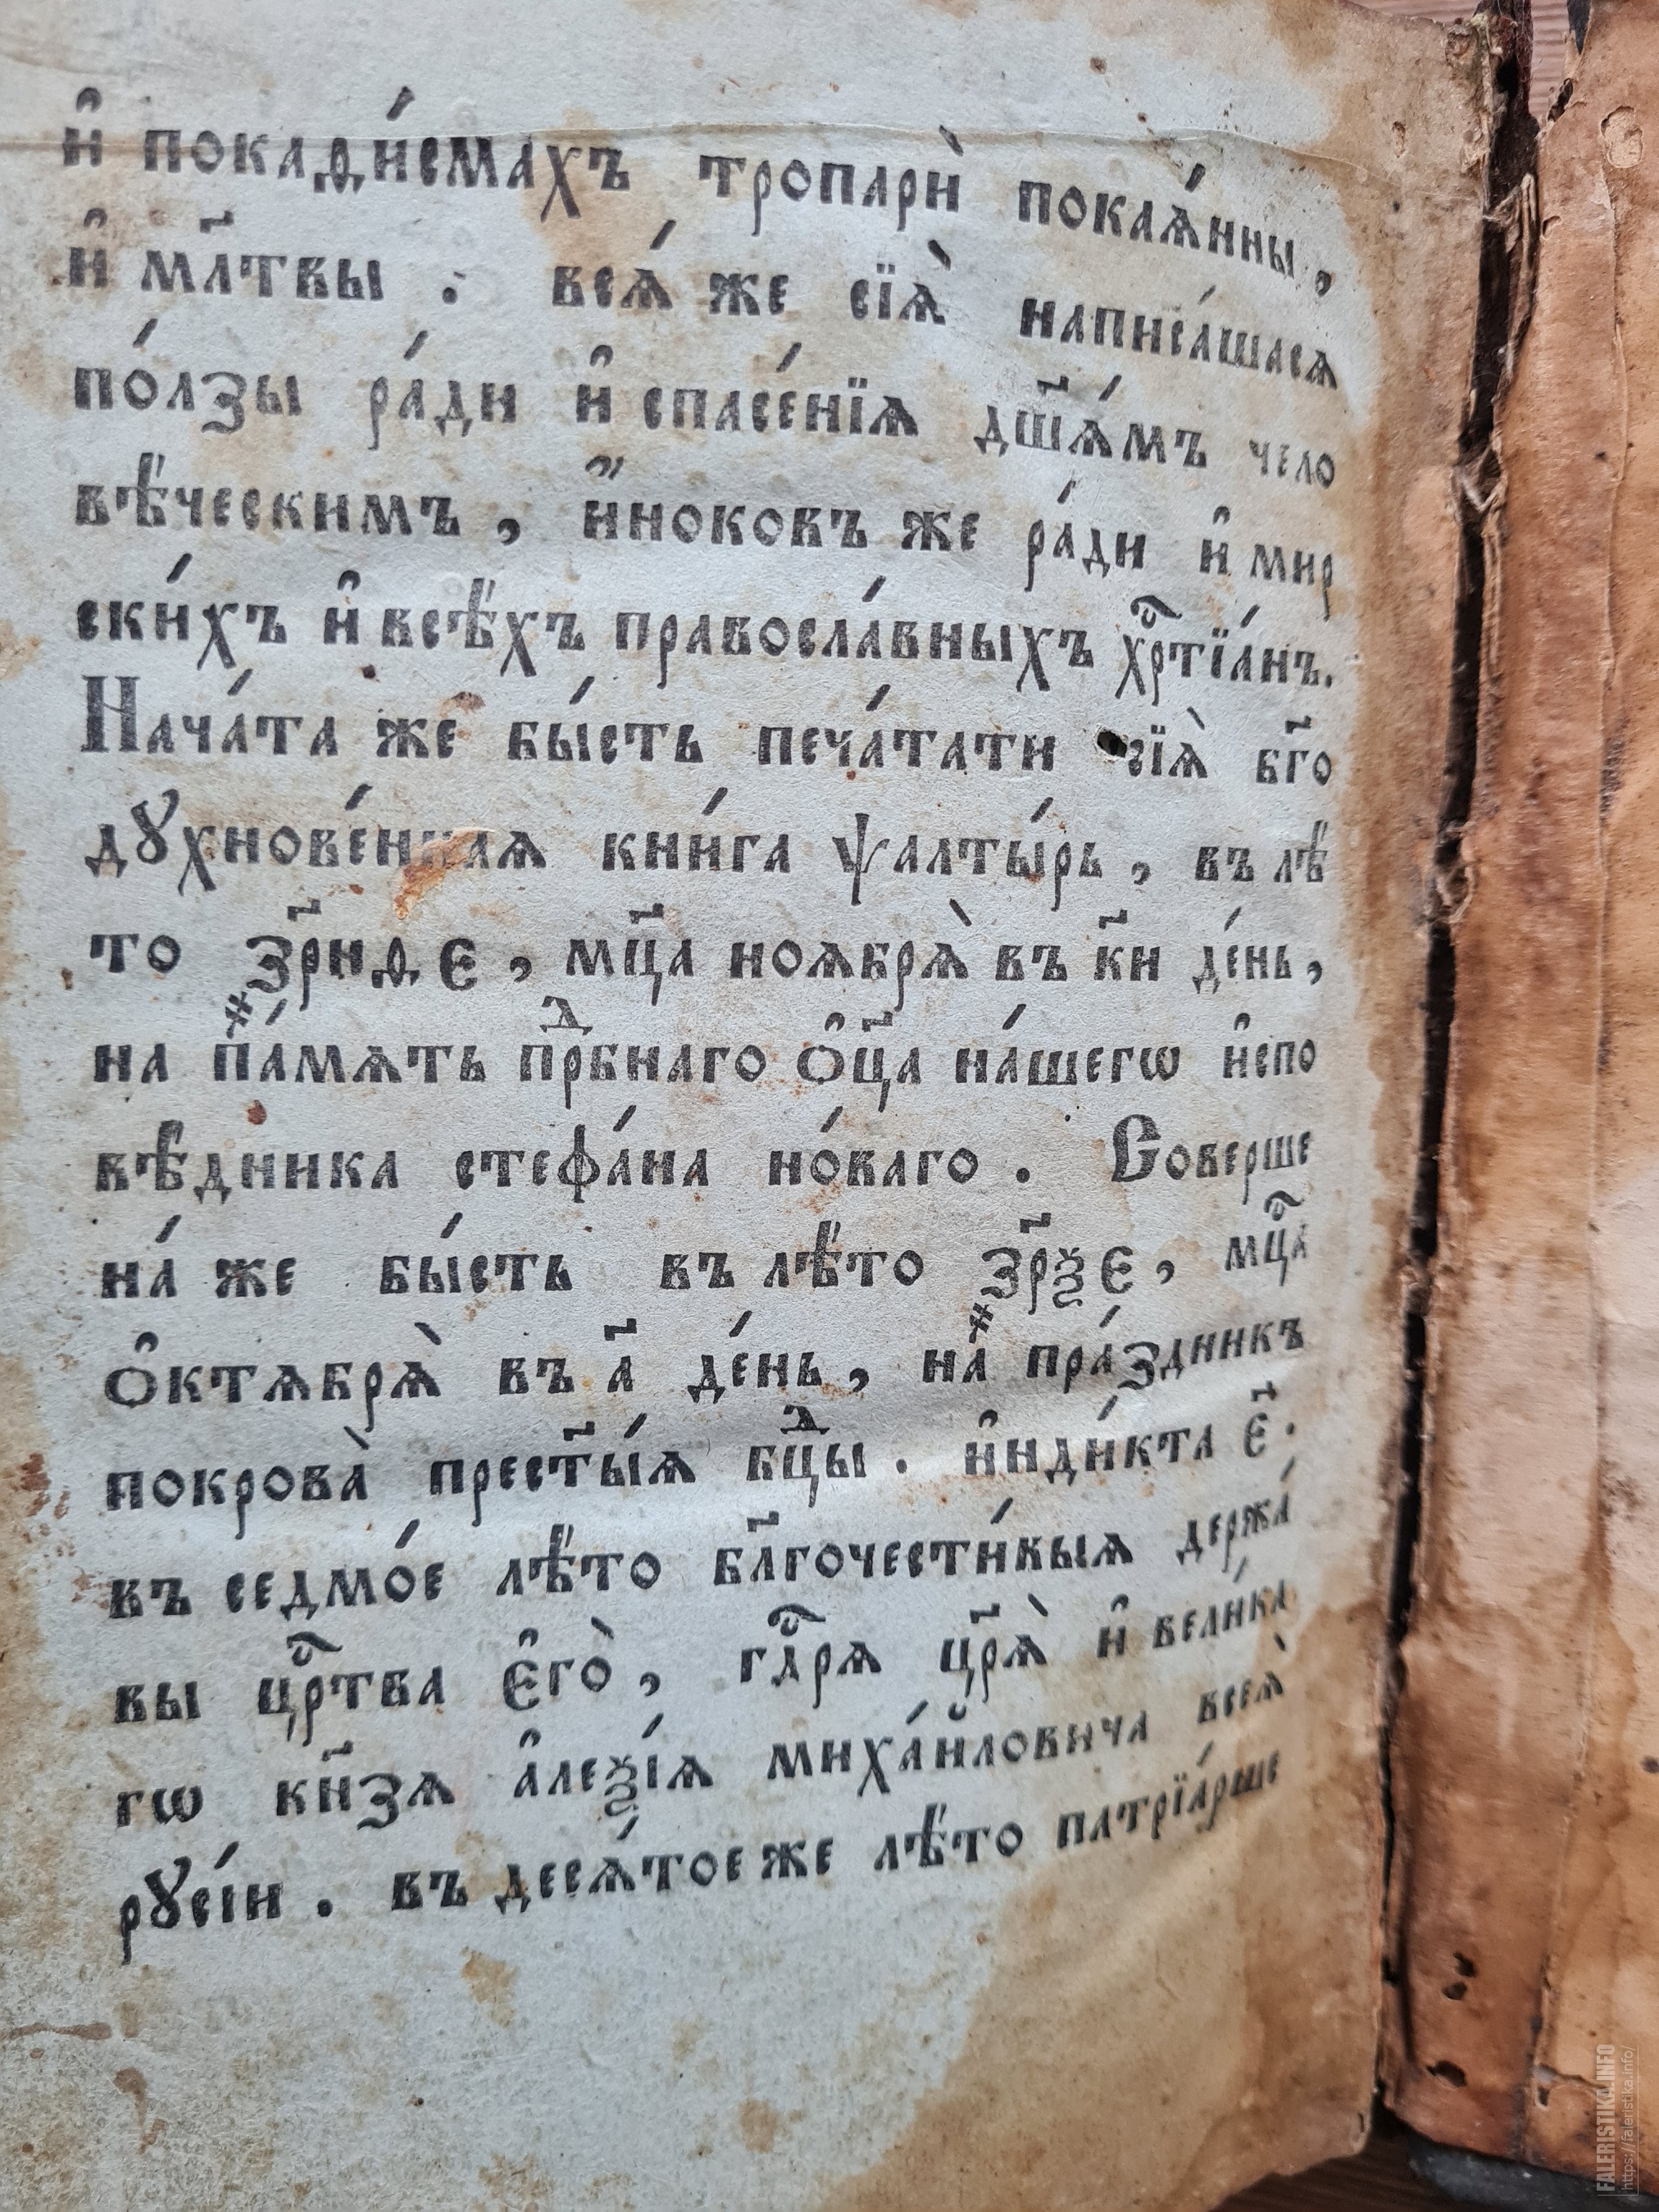 и҆ покаѳи́смахъ тропарѝ покаѧ́нны,
и҆ мл҃твы. всѧ́ же сїѧ̀ написа́шасѧ
по́лзы ра́ди и҆ спасе́нїѧ дш҃ѧ́мъ чело
вѣ́ческимъ, и҆́ноковъ же ра́ди и҆ мир
ски́хъ и҆ всѣ́хъ правосла́вныхъ хрⷭ҇тїа́нъ.
Нача́та же бы́сть печа́тати сїѧ̀ бг҃о
дꙋхнове́ннаѧ кни́га ѱалты́рь, въ лѣ́
то ҂зр҃нѳе, мц҃а ноѧбрѧ̀ въ к҃и де́нь,
на па́мѧть прⷣбнаго ѻ҆ц҃а на́шегѡ и҆спо
вѣ́дника стефа́на но́ваго. Соверше
на́ же бы́сть въ лѣ́то ҂зр҃ѯе, мцⷭ҇а
ѻ҆ктѧбрѧ̀ въ а҃ де́нь, на́ пра́здникъ
покрова̀ прест҃ы́ѧ бцⷣы. и҆нди́кта є҃.
въ седмо́е лѣ́то бл҃гочести́выѧ держа́
вы црⷭ҇тва є҆гѡ̀, гдⷭ҇рѧ цр҃ѧ̀ и҆ вели́ка
гѡ кн҃зѧ а҆леѯі́ѧ миха́йловича всеѧ̀
рꙋсі́и. въ десѧ́тое же лѣ́то патрїа́рше
FALERISTIKA.INFO
https://faleristika.info/